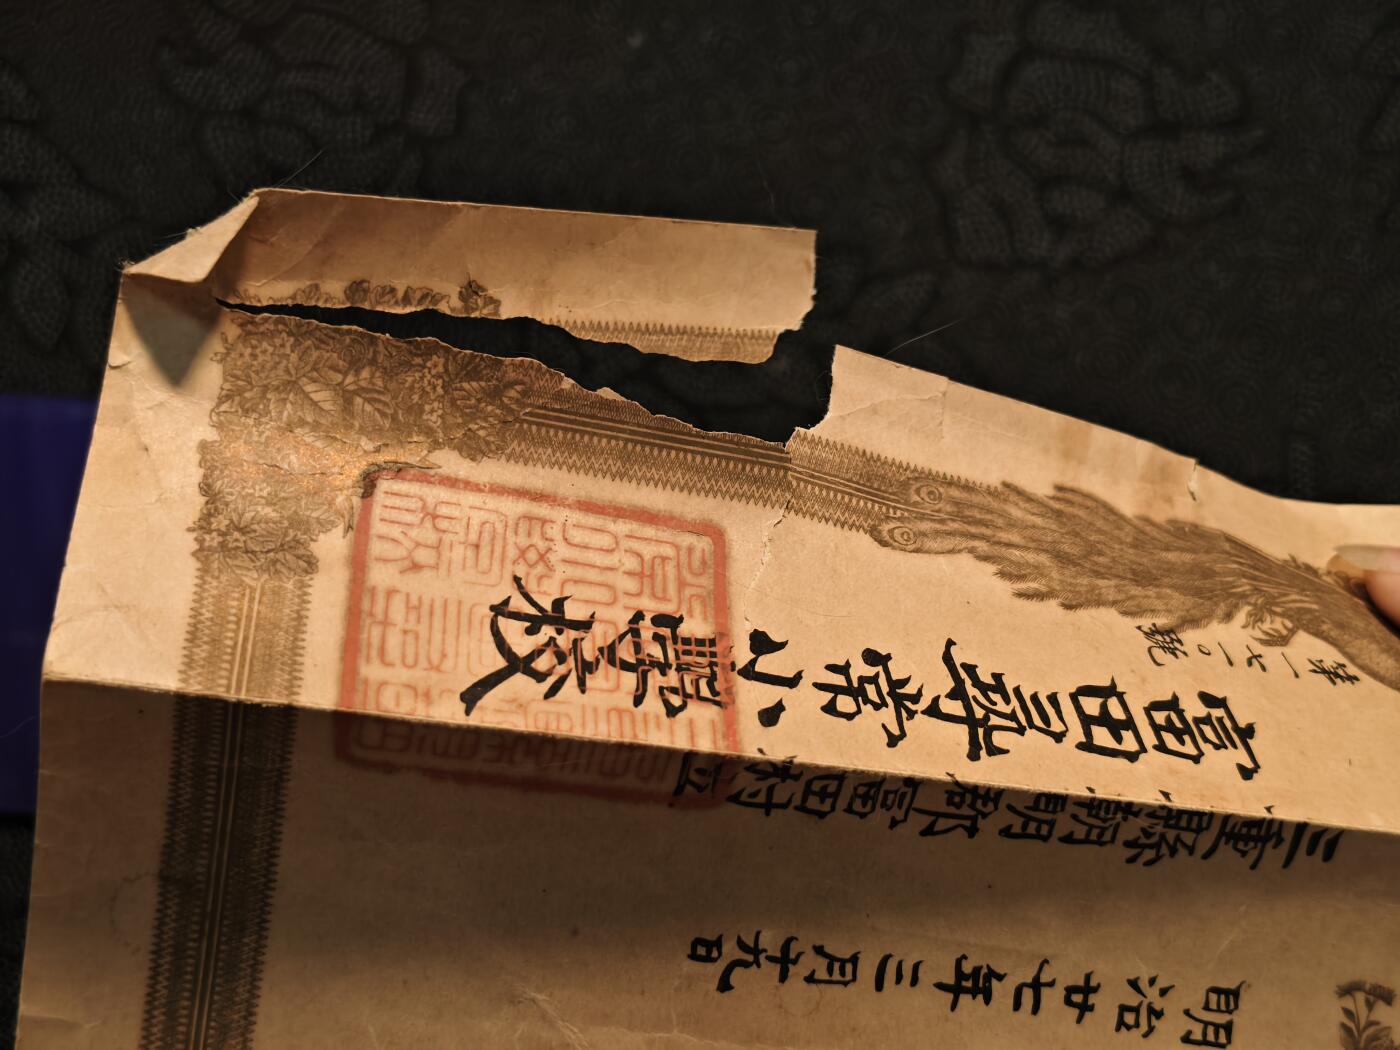 明治廿七年三月十九日
三重縣朝明郡富田村立
富田尋常小學校